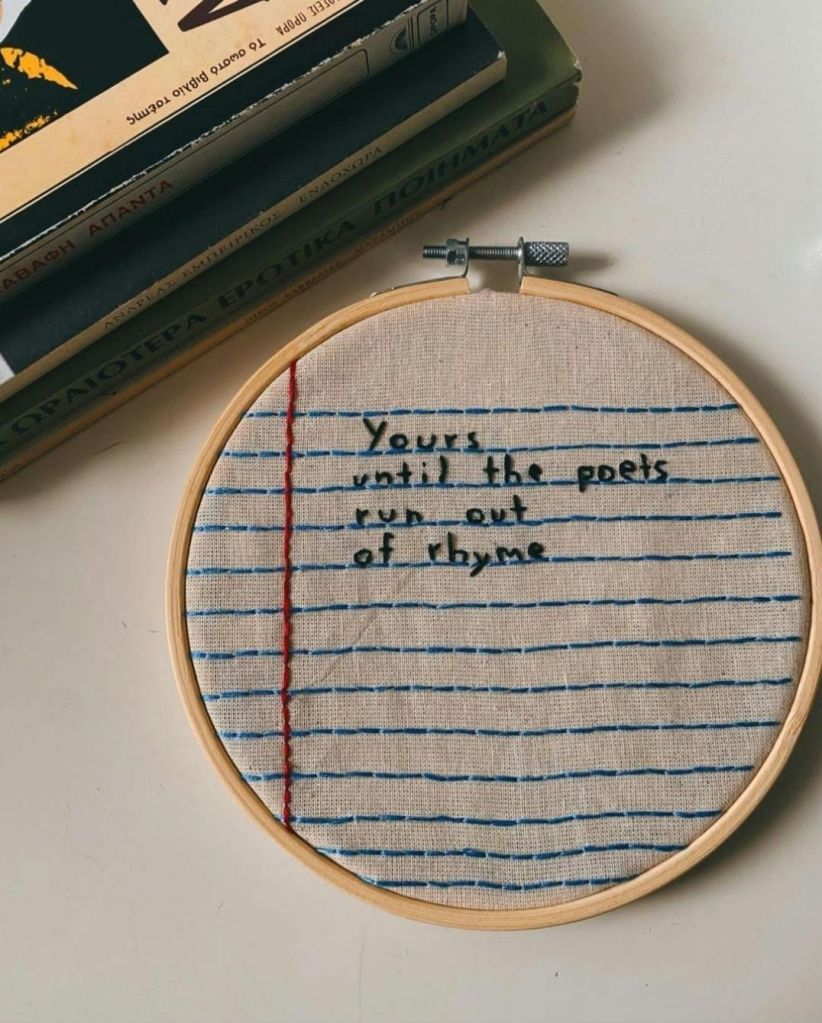 ΣΕΙΣ ΩΡΟΡΑ
Το σωστό βιβλίο τσέπης
ΚΑΒΑΦΗ ΑΠΑΝΤΑ
ΑΝΔΡΕΑΣ ΕΜΠΕΙΡΙΚΟΣ ΕΝΔΟΧΩΡΑ
ΩΡΑΙΟΤΕΡΑ ΕΡΩΤΙΚΑ ΠΟΙΗΜΑΤΑ
Yours
until the poets
run out
of rhyme